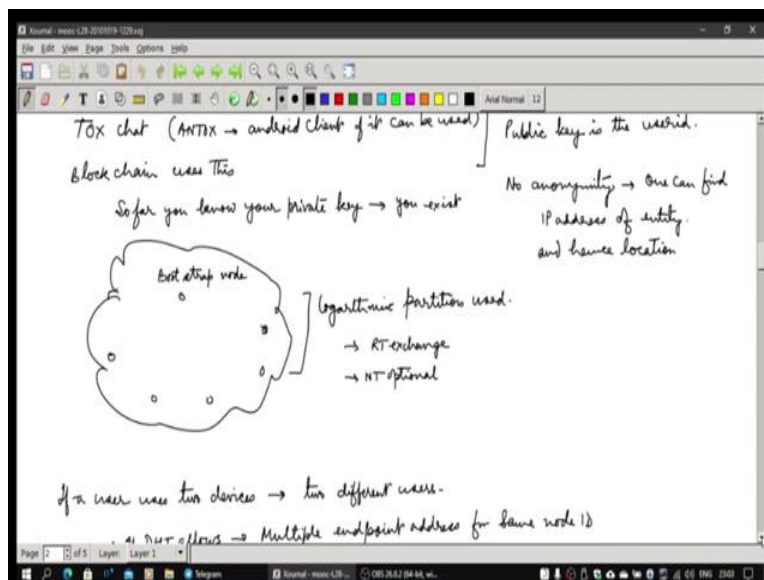 Xournal - mooc-L28-20101019-1229.xoj
File Edit View Page Tools Options Help
Arial Normal 12
TOX chat (ANTOX → android client if it can be used)
Public key is the userid.
Block chain uses This
No anonymity → One can find
IP address of entity.
and hence location
So far you know your private key → you exist
Boot strap node
Logarthmic partition used.
→ RT exchange
→ NT optional
If a user uses two devices → two different users.
DHT allows → Multiple endpoint address for Same node ID
Page 2 of 5 Layer: Layer 1
Telegram
Xournal - mooc-L28-...
OBS 26.0.2 (64-bit, wi...
ENG 23:03